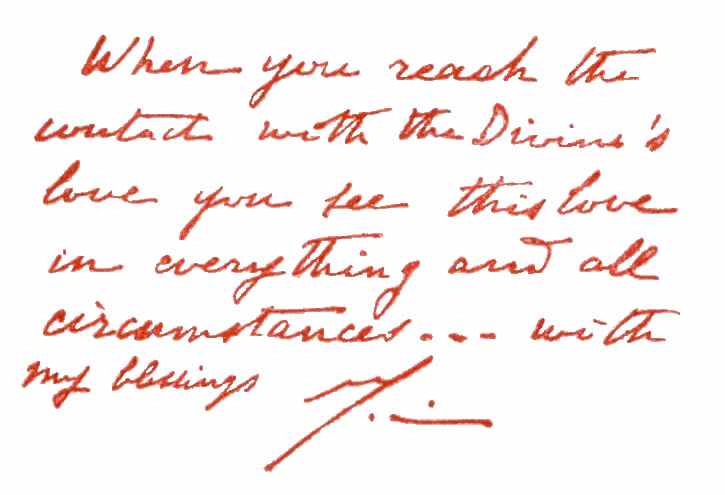 When you reach the
contact with the Divine's
love you see this love
in everything and all
circumstances... with
my blessings